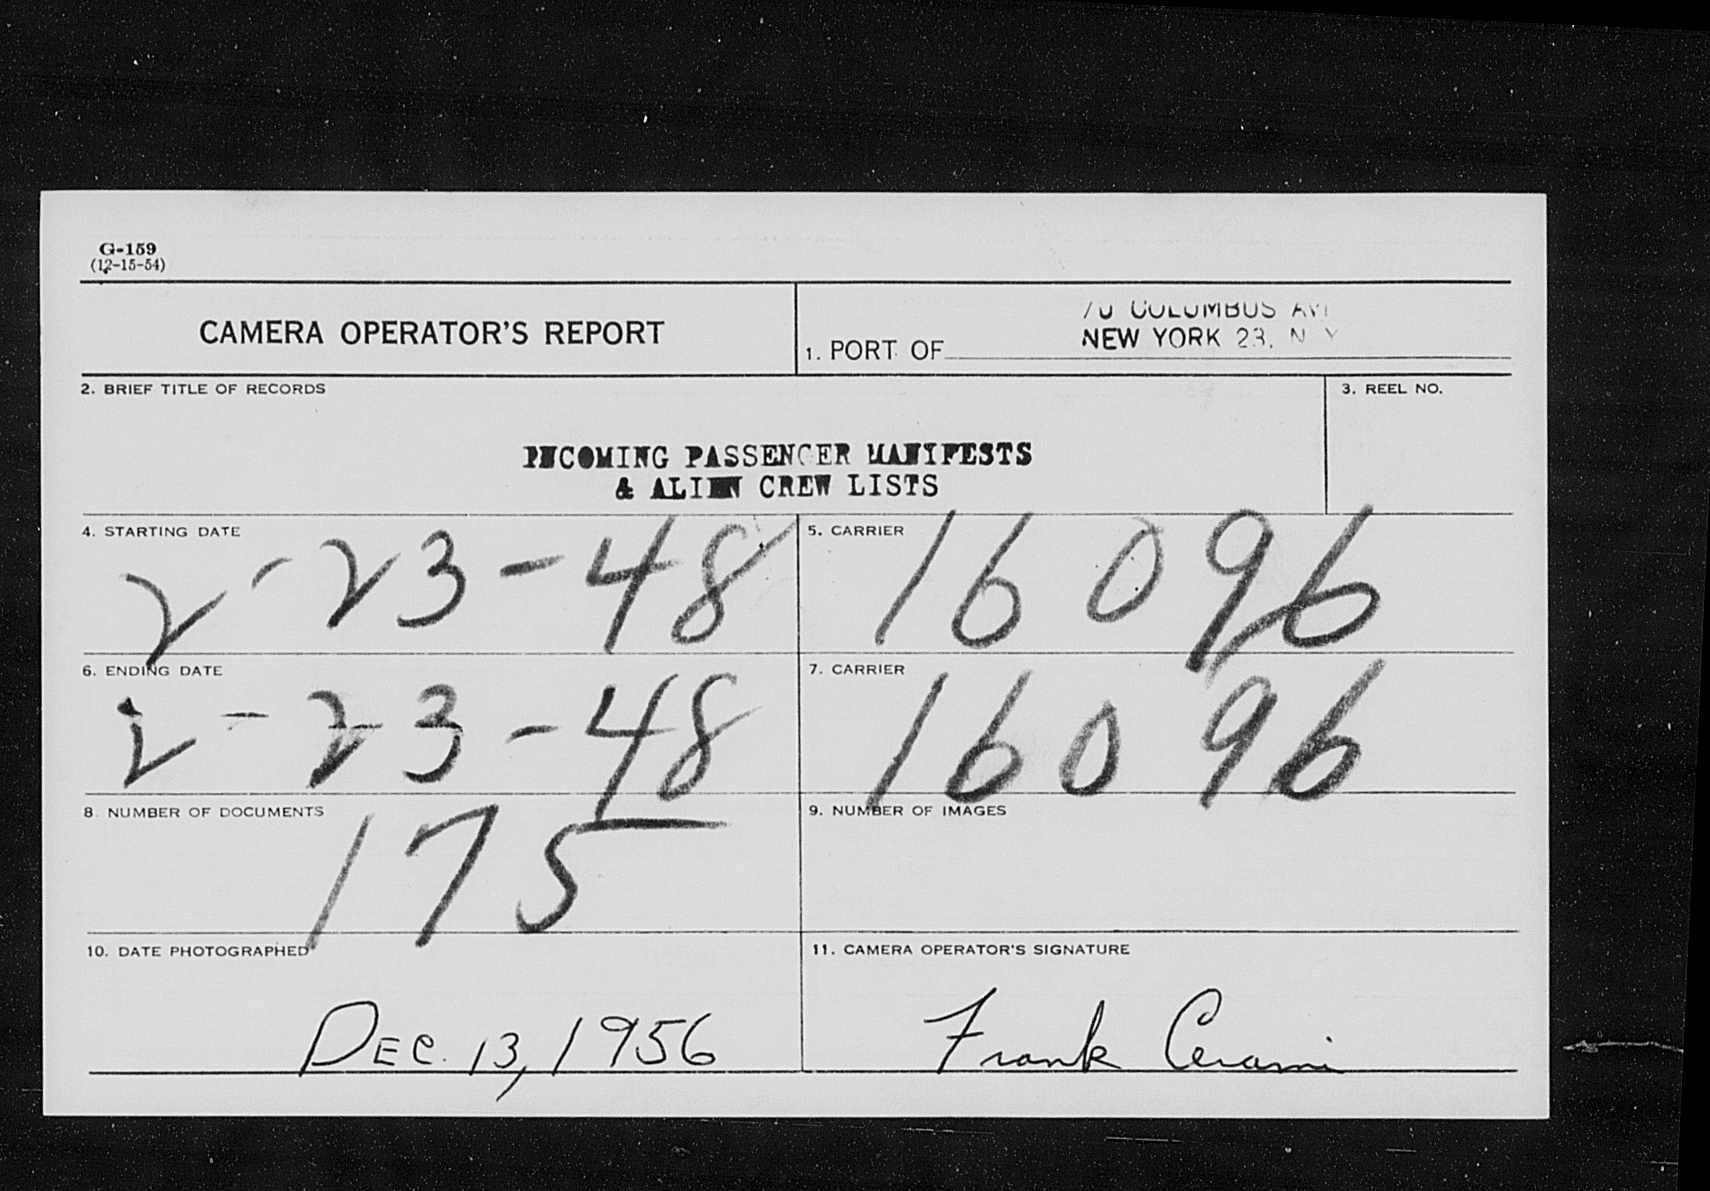 G-159
(12-15-54)
CAMERA OPERATOR'S REPORT
70 COLUMBUS AVE
1. PORT OF NEW YORK 23, N Y
2. BRIEF TITLE OF RECORDS
3. REEL NO.
INCOMING PASSENGER MANIFESTS
& ALIEN CREW LISTS
4. STARTING DATE
2-23-48
5. CARRIER
16096
6. ENDING DATE
2-23-48
7. CARRIER
16096
8. NUMBER OF DOCUMENTS
175
9. NUMBER OF IMAGES
10. DATE PHOTOGRAPHED
DEC. 13, 1956
11. CAMERA OPERATOR'S SIGNATURE
Frank Cerami